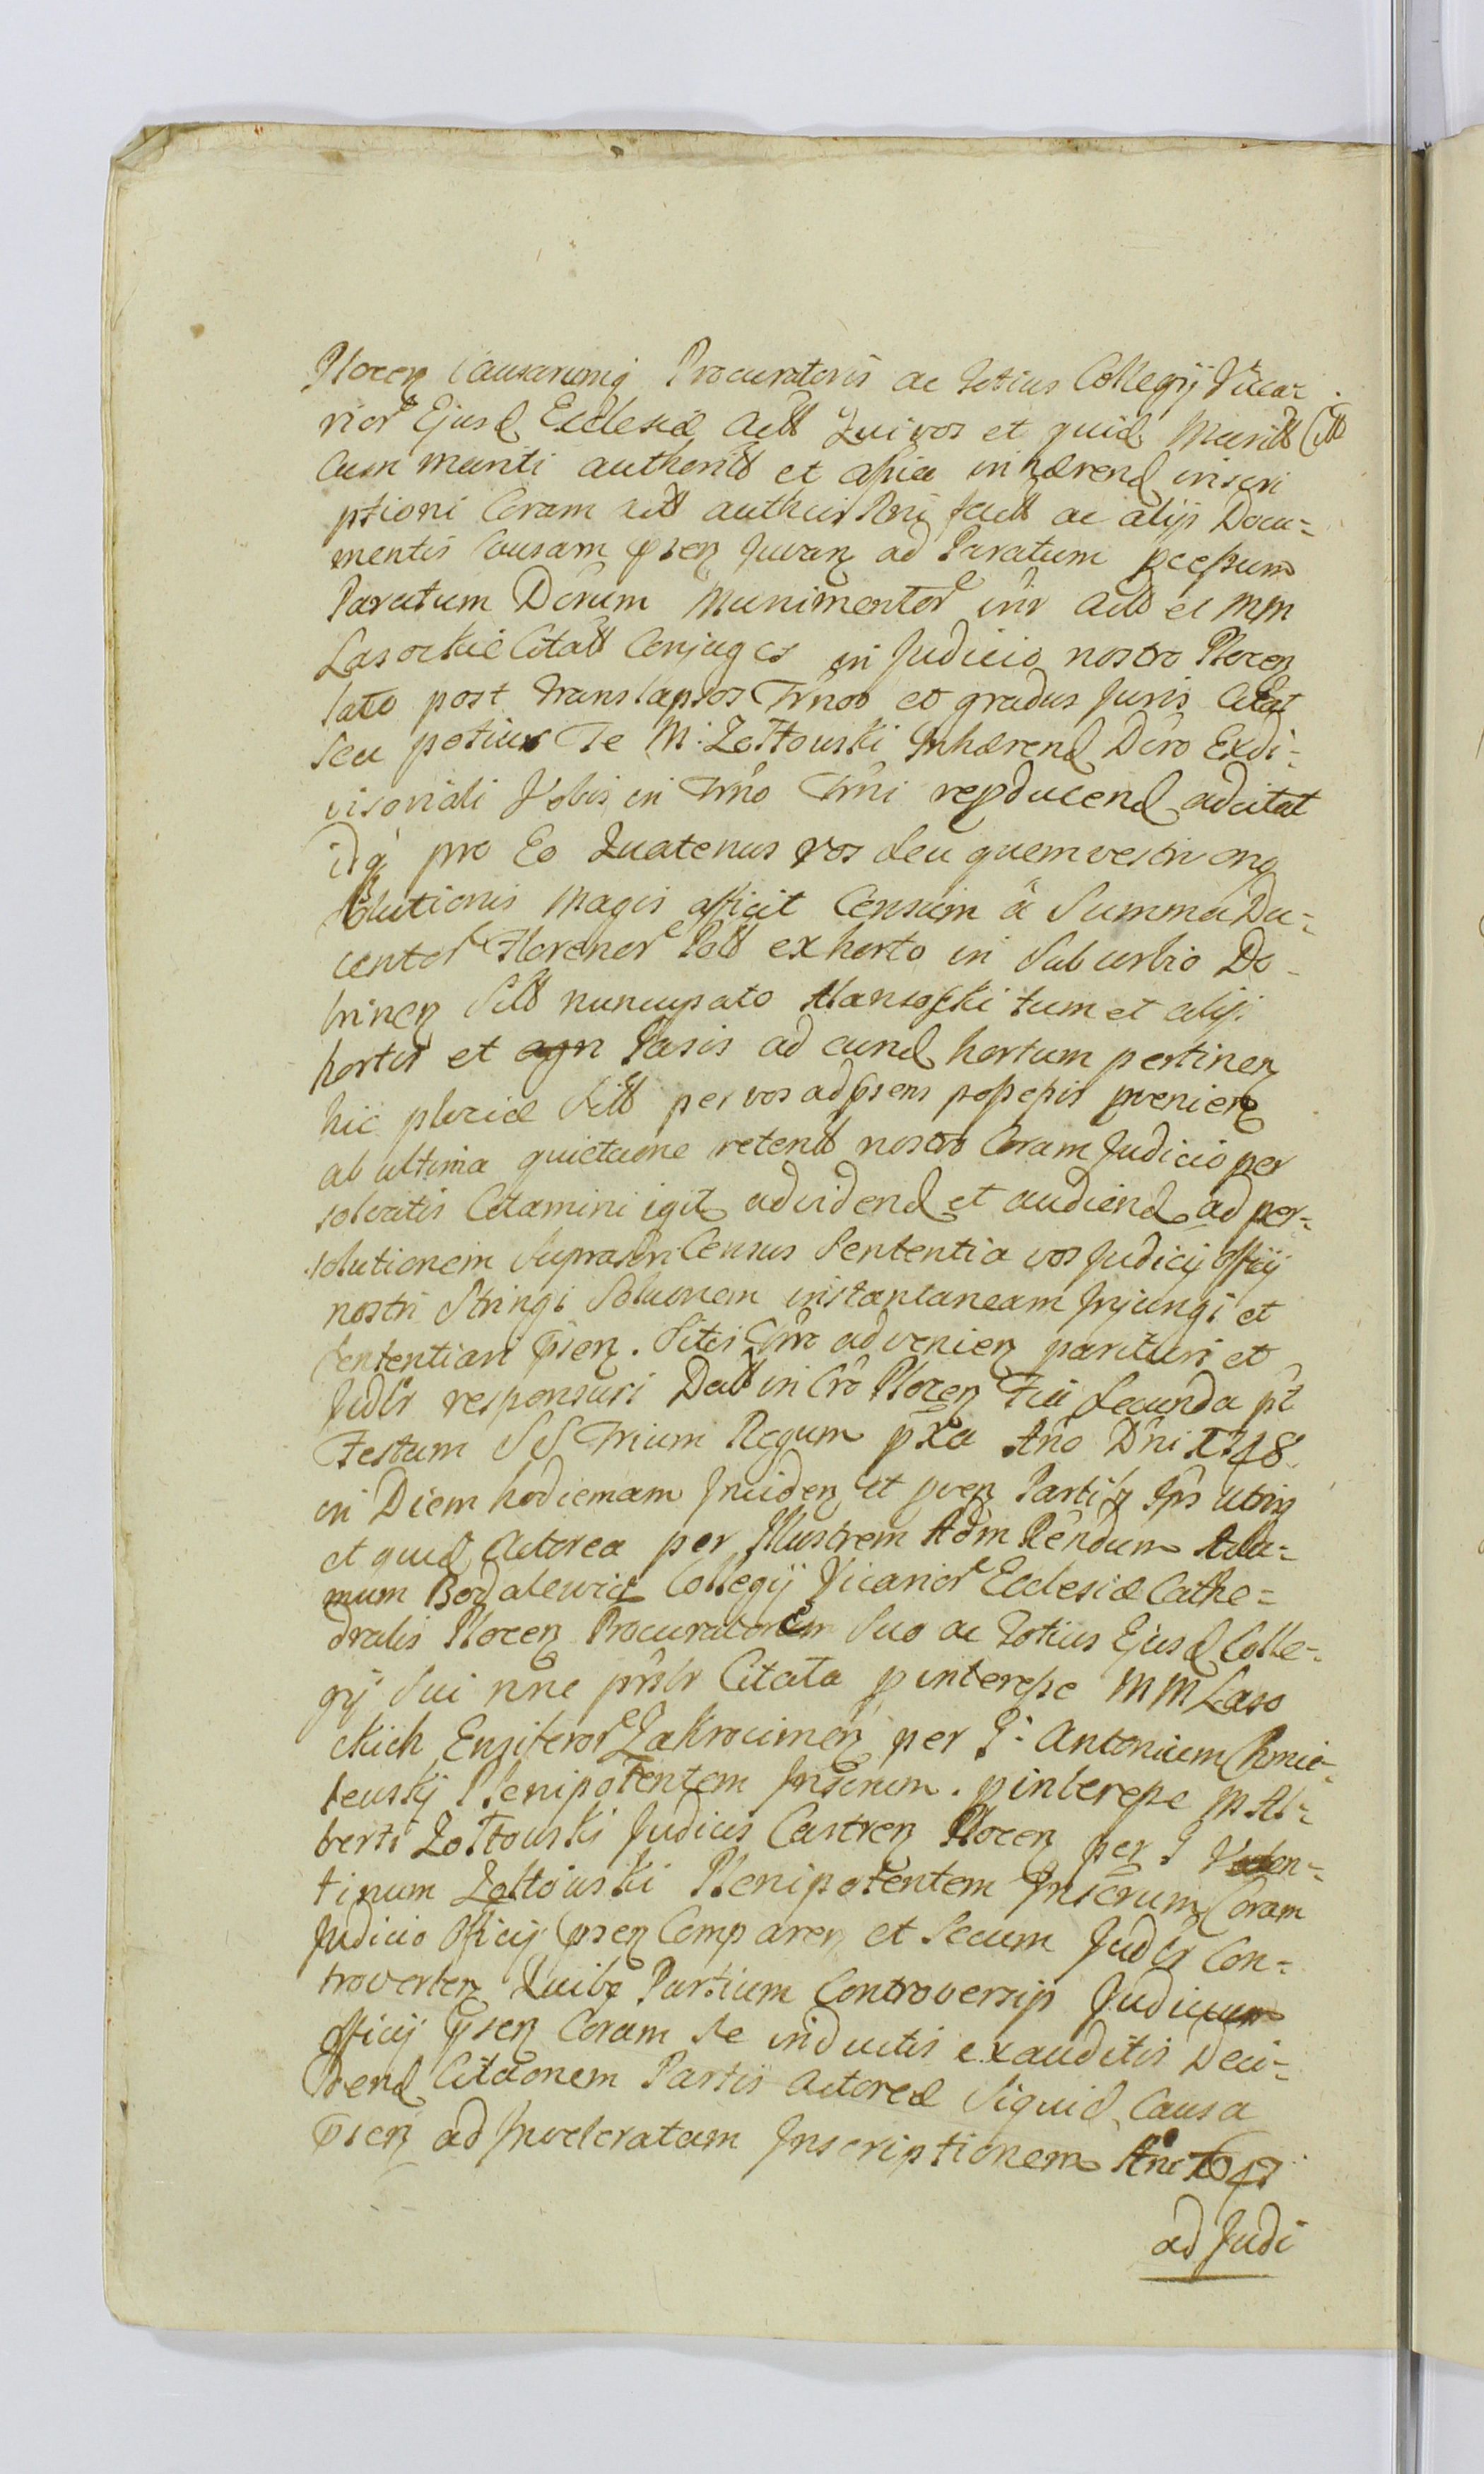 Plocen Causarumq Procuratoris ac totius Collegij Vicar
rior Ejusd Ecclesiæ Actt Qui vos et quid Maritt Citt
Cum mariti authoritt et assia inhærend inscri
ptioni Coram actt authcis Rni factt ac alijs Docu=
mentis Causam psen Juvan ad Paratum pcessum
Paratum Dorum Munimentor inr Actt et MM
Lasockie Citatt Conjuges in Judicio nostro Plocen
lato post translapsos Trnos et gradus Juris Citat
seu potius Te M. Zołtowski Inhærend Dcro Exdi=
visoriali Vobis in Trno Trni repducend adcitat
Idq pro Eo Quatenus vos seu quem vestru onq
solutionis magis afficit Censum à Summa Du=
centor Florenor Poll ex horto in Suburbio Do=
brinen Sitt nuncupato Mansofski tum et alijs
hortis et Plasis ad eund hortum pertinen
hic plociæ Sitt per vos adpsens possessis pvenien
ab ultima quietaone retentt nostro Coram Judicio per
solvatis Citamini igit ad vidend et audiend ad per=
solutionem Suprascri Census Sententia vos Judicij Officij
nostri Stringi Soluonem instantaneam Injungi et
sententiari psen. Sitis Trno advenien parituri et
Judlr responsuri Datt in Cro Plocen Fia Secunda pt
Festum SS Trium Regum pxa Ano Dni 1748
in Diem hodiernam Inciden et pven Partibq Ips Utrinq
et quid Actorea per Illustrem Adm Rendum Ada=
mum Bogdalewicz Collegij Vicarior Ecclesiæ Cathe=
dralis Plocen Procuratorem Suo ac totius Ejusd Colle=
gij Sui nne prslr Citata p interesse MM Laso
ckich Ensiferor Zakrocimen per G. Antonium Chmie=
lewskij Plenipotentem Insrium. p interesse M Al=
berti Zołtowski Judicis Castren Plocen per G Valen=
tinum Zołtowski Plenipotentem Insrium Coram
Judicio Officij psen Comparen et Secum Judlr Con=
troverten Quibq Partium Controversijs Judicium
Officij psen Coram Se inductis exauditis Deci=
dend Citaonem Partis Actoreæ Siquid Causa
psen ad Inveteratam Inscriptionem Ani 1647
ad Judi